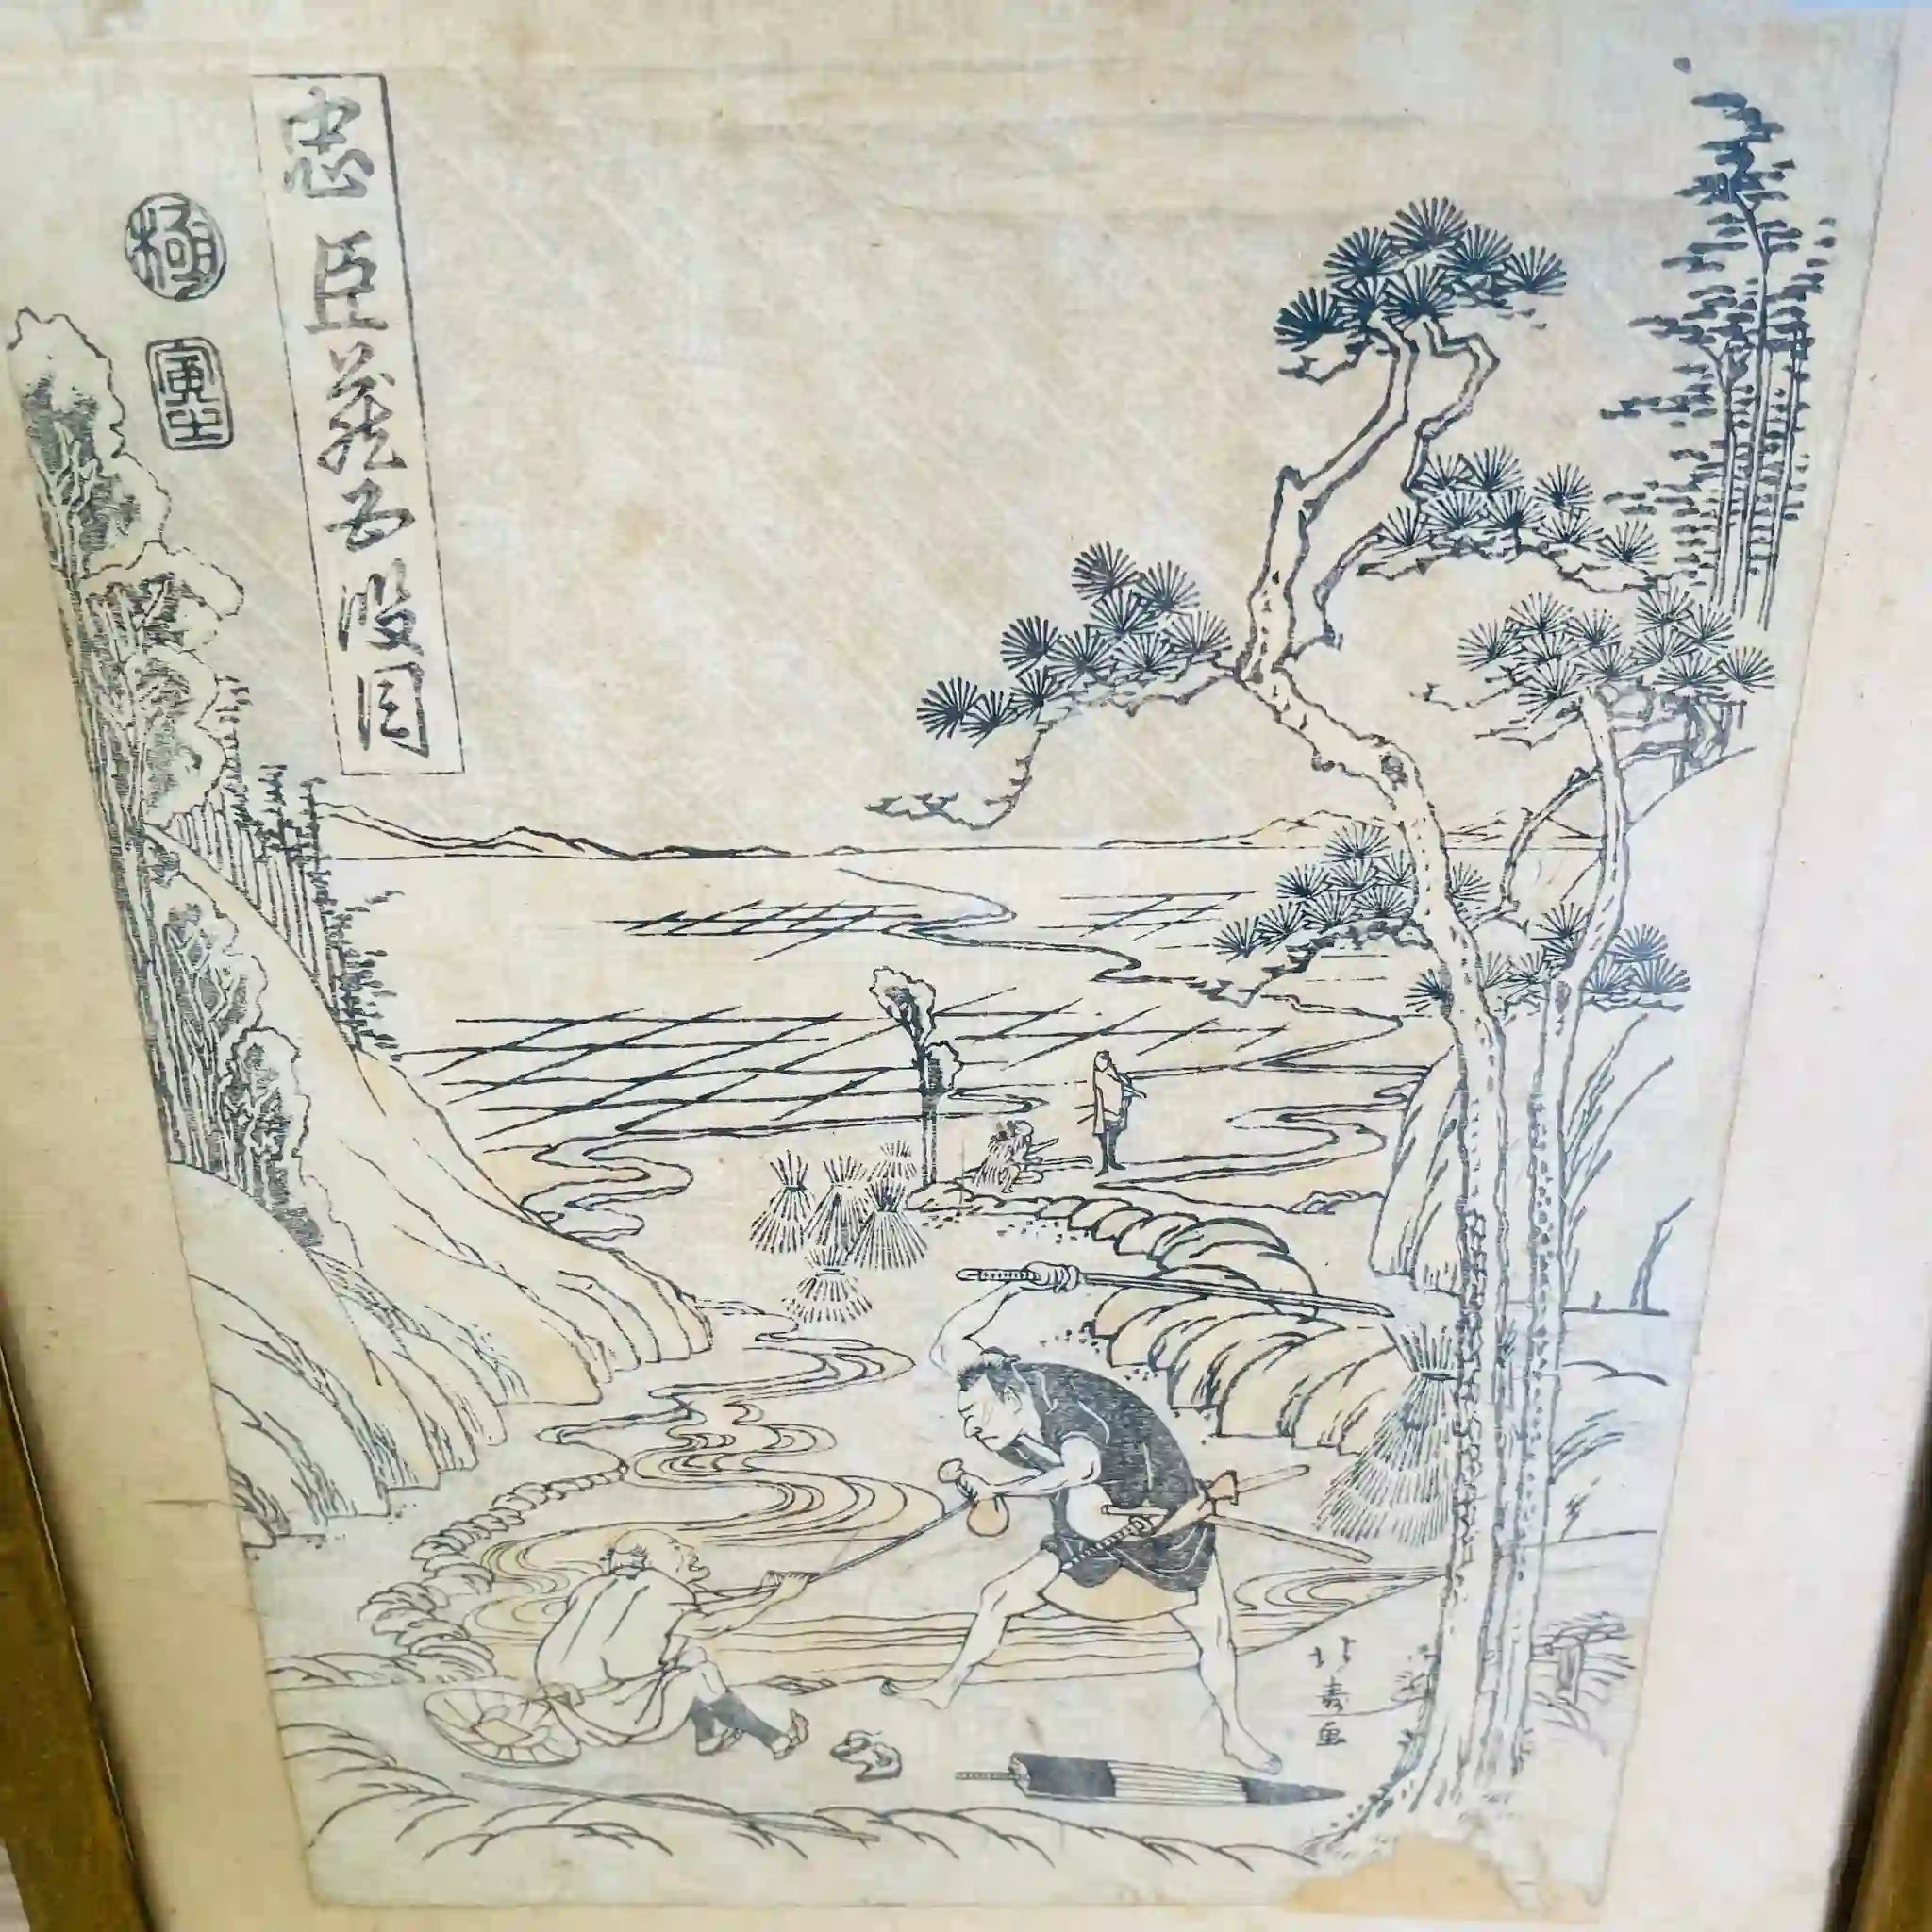 忠臣蔵五段目
極
北寿画